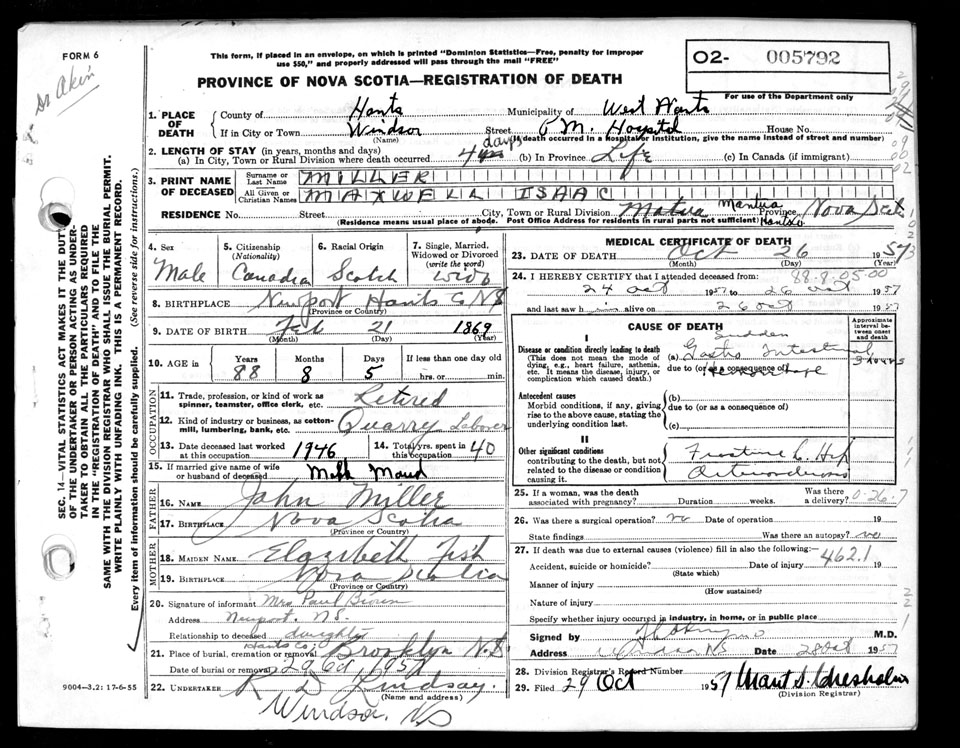 FORM 6
Dr Akin
This form, if placed in an envelope, on which is printed "Dominion Statistics—Free, penalty for improper
use $50," and properly addressed will pass through the mail "FREE"
PROVINCE OF NOVA SCOTIA—REGISTRATION OF DEATH
02- 005792
For use of the Department only
SEC. 14—VITAL STATISTICS ACT MAKES IT THE DUTY
OF THE UNDERTAKER OR PERSON ACTING AS UNDER-
TAKER TO OBTAIN ALL THE PARTICULARS REQUIRED
IN THE "REGISTRATION OF DEATH" AND TO FILE THE
SAME WITH THE DIVISION REGISTRAR WHO SHALL ISSUE THE BURIAL PERMIT.
WRITE PLAINLY WITH UNFADING INK. THIS IS A PERMANENT RECORD.
Every item of information should be carefully supplied. (See reverse side for instructions.)
1. PLACE OF DEATH
County of Hants Municipality of West Hants
If in City or Town Windsor Street P. M. Hospital House No.
(Name) (If death occurred in a Hospital or Institution, give the name instead of street and number)
2. LENGTH OF STAY (in years, months and days)
(a) In City, Town or Rural Division where death occurred 4 days (b) In Province Life (c) In Canada (if immigrant)
3. PRINT NAME OF DECEASED
Surname or Last Name MILLER
All Given or Christian Names MAXWELL ISAAC
RESIDENCE No. Street City, Town or Rural Division Mantua Province Nova Scotia
(Residence means usual place of abode. Post Office Address for rural parts not sufficient) Hantsco
4. Sex Male
5. Citizenship (Nationality) Canadian
6. Racial Origin Scotch
7. Single, Married, Widowed or Divorced (write the word) wido
8. BIRTHPLACE Newport Hants Co NS
(Province or Country)
9. DATE OF BIRTH Feb 21 1869
(Month) (Day) (Year)
10. AGE in Years 88 Months 8 Days 5 If less than one day old hrs. or min.
OCCUPATION
11. Trade, profession, or kind of work as spinner, teamster, office clerk, etc. Retired
12. Kind of industry or business, as cotton-mill, lumbering, bank, etc. Quarry Laborer
13. Date deceased last worked at this occupation 1946
14. Total yrs. spent in this occupation 40
15. If married give name of wife or husband of deceased Maud
FATHER
16. NAME John Miller
17. BIRTHPLACE Nova Scotia
(Province or Country)
MOTHER
18. MAIDEN NAME Elazibeth Fish
19. BIRTHPLACE Nova Scotia
(Province or Country)
20. Signature of informant Mrs Paul
Address Newport, N.S.
Relationship to deceased daughter
21. Place of burial, cremation or removal Hants Co; Brooklyn N.S.
Date of burial or removal 29 Oct, 1957
22. UNDERTAKER R D Lindsay.
(Name and address)
Windsor, NS
9004—3.2: 17-6-55
MEDICAL CERTIFICATE OF DEATH
23. DATE OF DEATH Oct 26 1957
(Month) (Day) (Year)
88.8.05.00
24. I HEREBY CERTIFY that I attended deceased from:
24 Oct 1957 to 26 Oct 1957
and last saw h alive on 26 Oct 1957
CAUSE OF DEATH
Approximate interval between onset and death
I
Disease or condition directly leading to death
(This does not mean the mode of dying, e.g., heart failure, asthenia, etc. It means the disease, injury, or complication which caused death.)
(a) Sudden Gastro Intestinal Hemorrhage 3 hours
due to (or as a consequence of)
Antecedent causes
Morbid conditions, if any, giving rise to the above cause, stating the underlying condition last.
(b)
due to (or as a consequence of)
(c)
II
Other significant conditions contributing to the death, but not related to the disease or condition causing it.
Fracture L. Hip
25. If a woman, was the death associated with pregnancy? Duration weeks. Was there a delivery? 0.26.7
26. Was there a surgical operation? no Date of operation 19
State findings Was there an autopsy? no
27. If death was due to external causes (violence) fill in also the following:— 462.1
Accident, suicide or homicide? Date of injury 19
(State which)
Manner of injury
(How sustained)
Nature of injury
Specify whether injury occurred in industry, in home, or in public place
Signed by M.D.
Address Windsor NS Date 28 Oct 1957
28. Division Registrar's Record Number
29. Filed 29 Oct 1957
(Division Registrar)